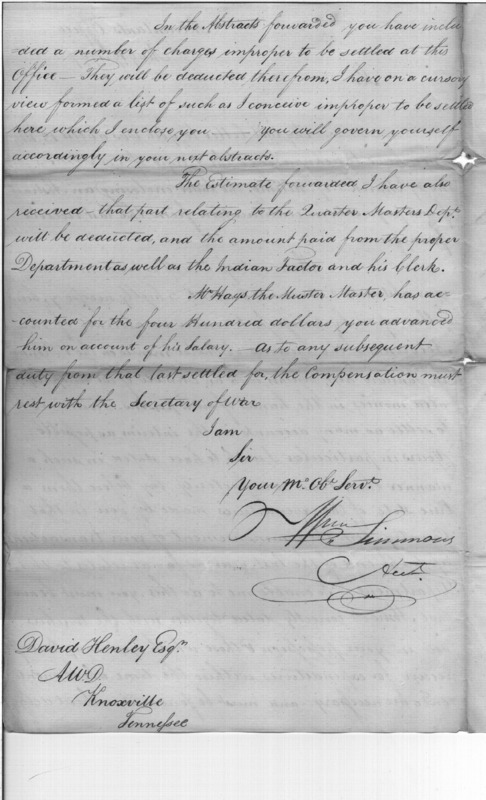 In the Abstracts forwarded, you have inclu-
ded a number of charges improper to be settled at this
Office — They will be deducted therefrom, I have on a cursory
view formed a list of such as I conceive improper to be settled
here, which I enclose you You will govern yourself
accordingly in your next abstracts.
The Estimate forwarded I have also
received — that part relating to the Quarter Masters Dept.
will be deducted, and the amount paid from the proper
Department as well as the Indian Factor and his Clerk.
Mr Hays, the Muster Master, has ac-
-counted for the four Hundred dollars, you advanced
him on account of his Salary. — As to any subsequent
duty from that last settled for, the Compensation must
rest with the Secretary of War
I am
Sir
Your Mo. Ob. Servt.
Wm Simmons
Acct.
David Henley Esqr.
AWD
Knoxville
Tennessee